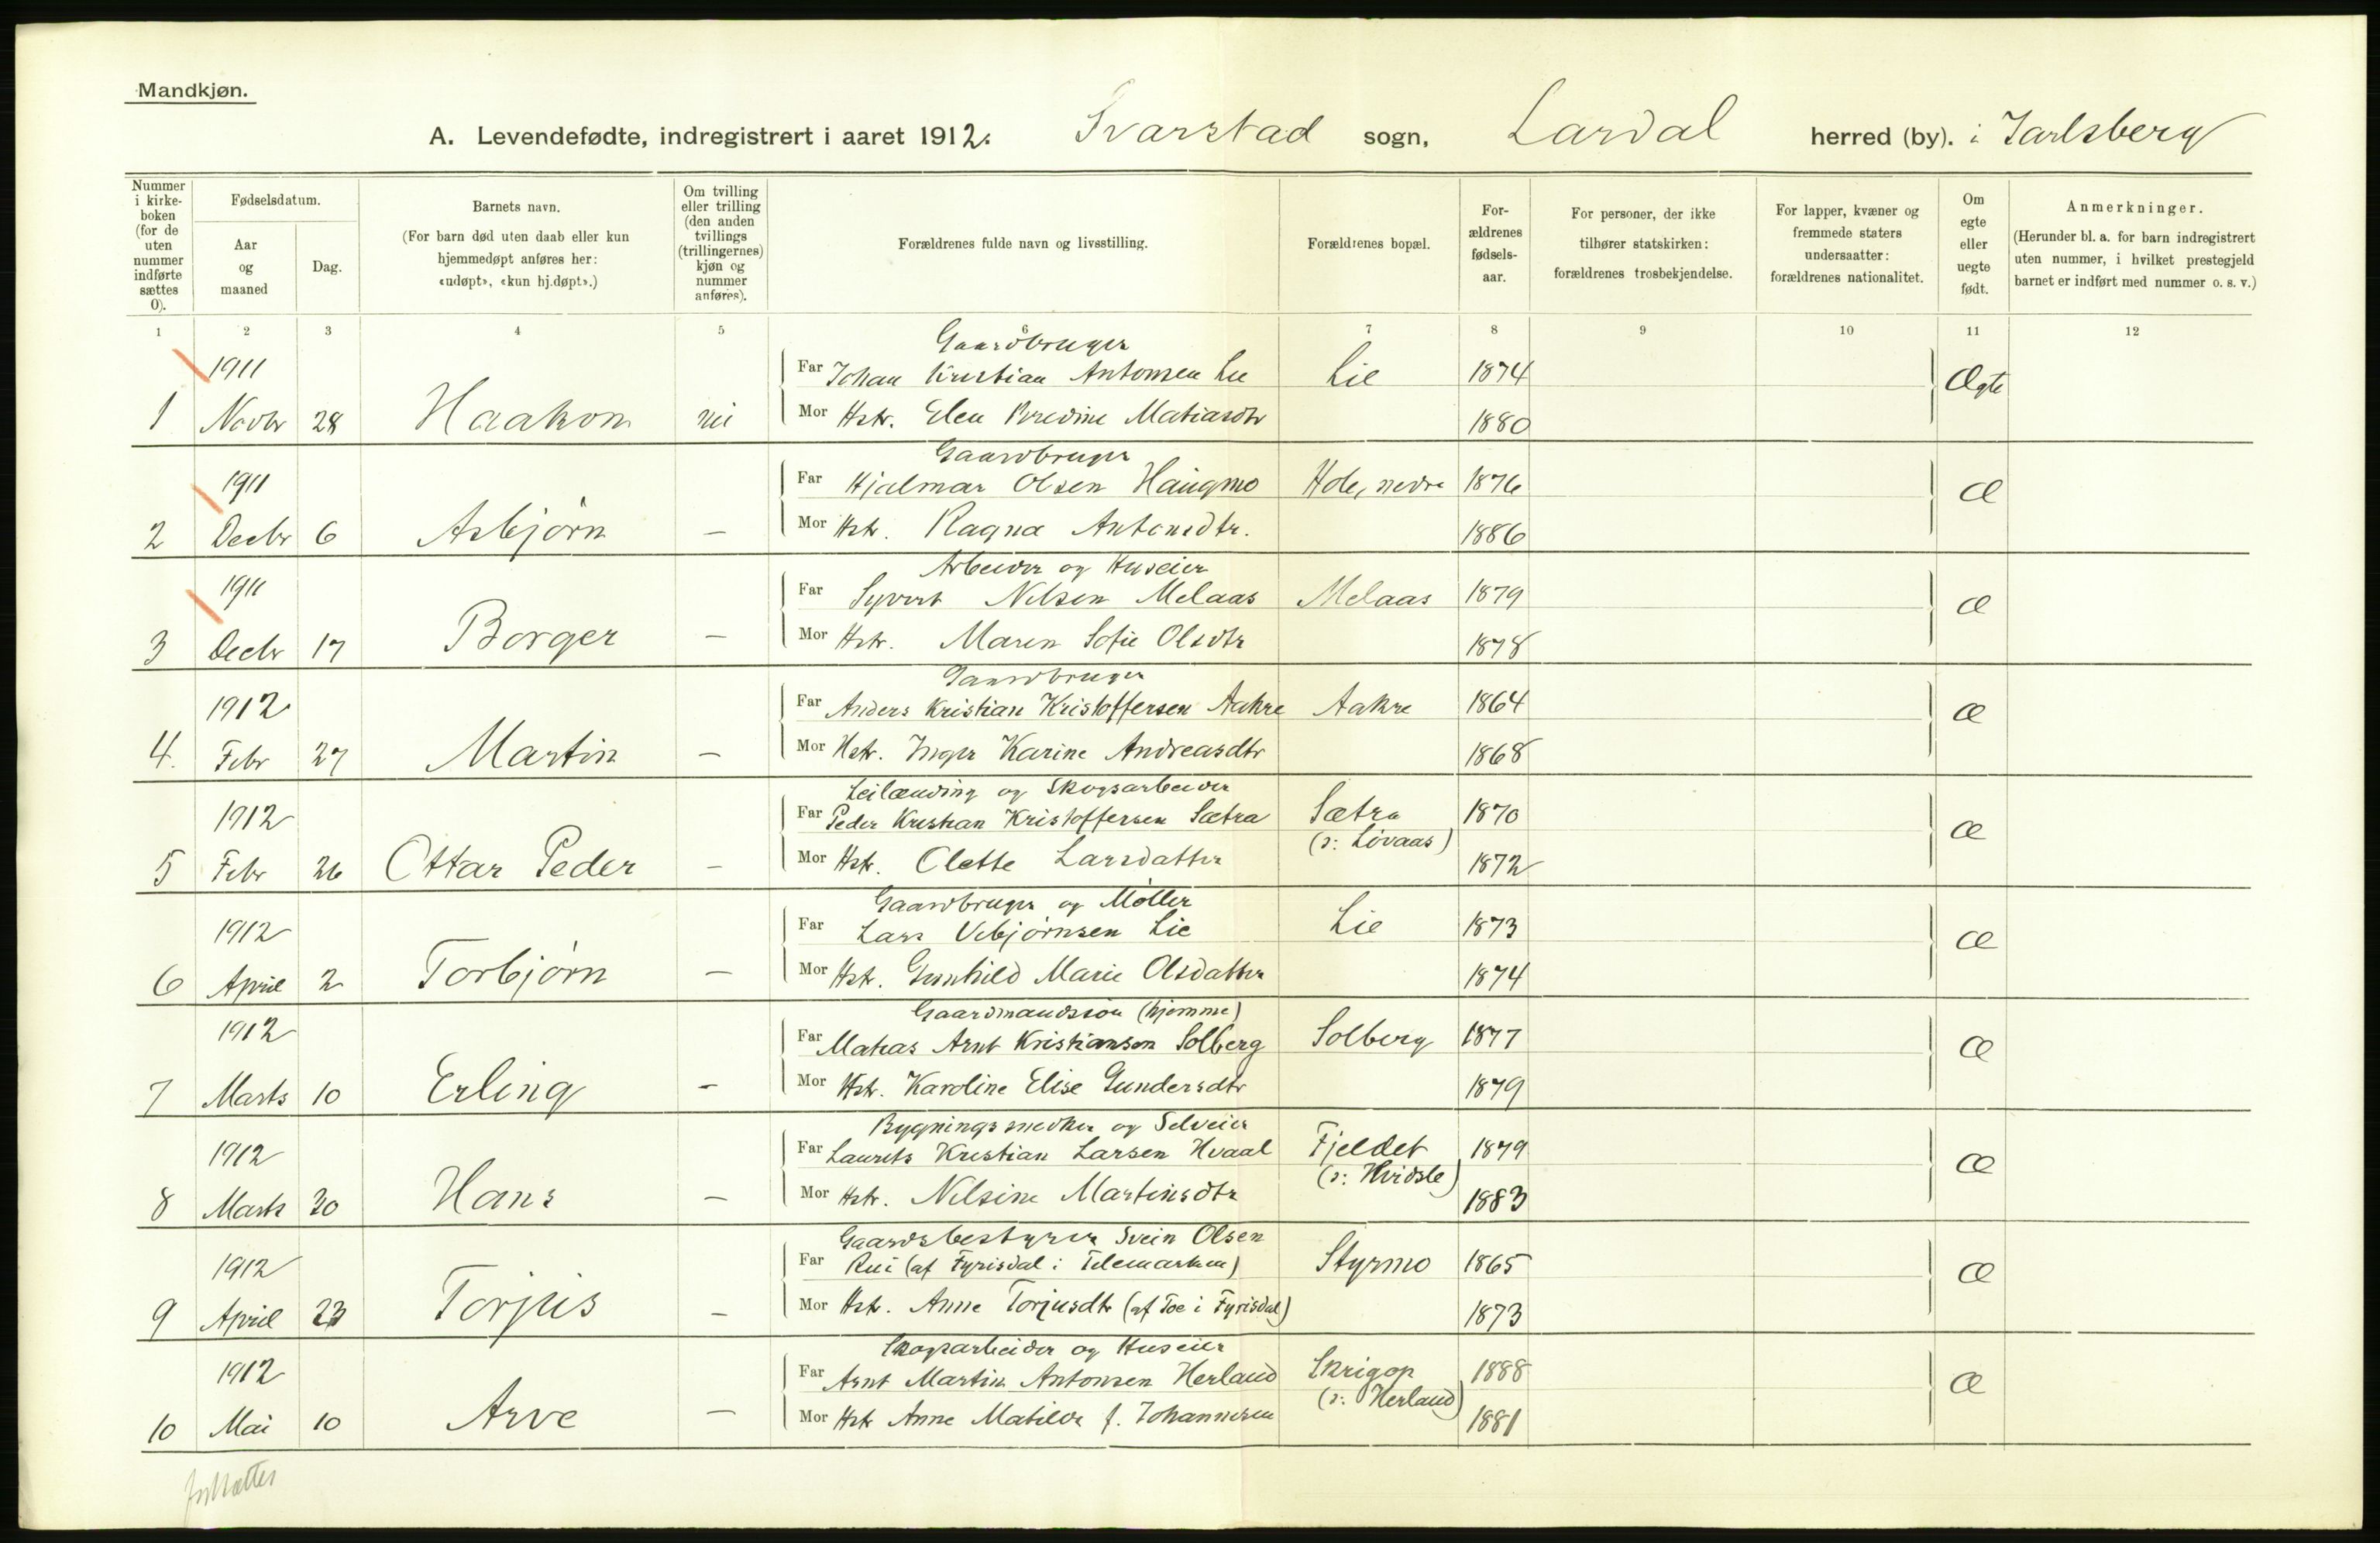 Mandkjøn.
A. Levendefødte, indregistrert i aaret 1912. Svarstad sogn, Lardal herred (by). i Jarlsberg
Nummer i kirkeboken (for de uten nummer indførte sættes 0).
Fødselsdatum.
Aar og maaned
Dag.
Barnets navn.
(For barn død uten daab eller kun hjemmedøpt anføres her: «udøpt», «kun hj.døpt».)
Om tvilling eller trilling (den anden tvillings (trillingernes) kjøn og nummer anføres).
Forældrenes fulde navn og livsstilling.
Forældrenes bopæl.
Forældrenes fødselsaar.
For personer, der ikke tilhører statskirken: forældrenes trosbekjendelse.
For lapper, kvæner og fremmede staters undersaatter: forældrenes nationalitet.
Om egte eller uegte født.
Anmerkninger.
(Herunder bl. a. for barn indregistrert uten nummer, i hvilket prestegjeld barnet er indført med nummer o. s. v.)
1 2 3 4 5 6 7 8 9 10 11 12
Gaardbruger
1911 Far Johan Kristian Antonsen Lie Lie 1874 Ægte
1 Novbr 28 Haakon nei Mor Hstr. Elen Bredine Matiasdtr 1880
Gaardbruger
1911 Far Hjalmar Olsen Haugmo Hole, nedre 1876 Æ
2 Decbr 6 Asbjørn — Mor Hstr. Ragna Antonsdtr. 1886
Arbeider og Huseier
1911 Far Syvert Nilsen Melaas Melaas 1879 Æ
3 Decbr 17 Borger — Mor Hstr. Maren Sofie Olsdtr 1878
Gaardbruger
1912 Far Anders Kristian Kristoffersen Aakre Aakre 1864 Æ
4. Febr 27 Martin — Mor Hstr. Inger Karine Andreasdtr 1868
Leilænding og Skogsarbeider
1912 Far Peder Kristian Kristoffersen Sætra Sætra 1870 Æ
(ɔ: Løvaas)
5 Febr 26 Ottar Peder — Mor Hstr. Olette Larsdatter 1872
Gaardbruger og Møller
1912 Far Lars Vebjørnsen Lie Lie 1873 Æ
6 April 2 Torbjørn — Mor Hstr. Gunhild Marie Olsdatter 1874
Gaardmandssøn (hjemme)
1912 Far Matias Arnt Kristianson Solberg Solberg 1877 Æ
7 Marts 10 Erling — Mor Hstr. Karoline Elise Gundersdtr 1879
Bygningssnedker og Selveier
1912 Far Laurits Kristian Larsen Hvaal Fjeldet 1879 Æ
(ɔ: Hvidsle)
8 Marts 30 Hans — Mor Hstr. Nilsine Martinsdtr 1883
Gaardsbestyrer Svein Olsen
1912 Far Rui (af Fyrisdal i Telemarken) Styrmo 1865 Æ
9 April 23 Torjus — Mor Hstr. Anne Torjusdtr (af Toe i Fyrisdal) 1873
Skogsarbeider og Huseier
1912 Far Arnt Martin Antonsen Herland Skrigop 1888 Æ
(ɔ: Herland)
10 Mai 10 Arve — Mor Hstr Anne Matilde f. Johannesen 1881